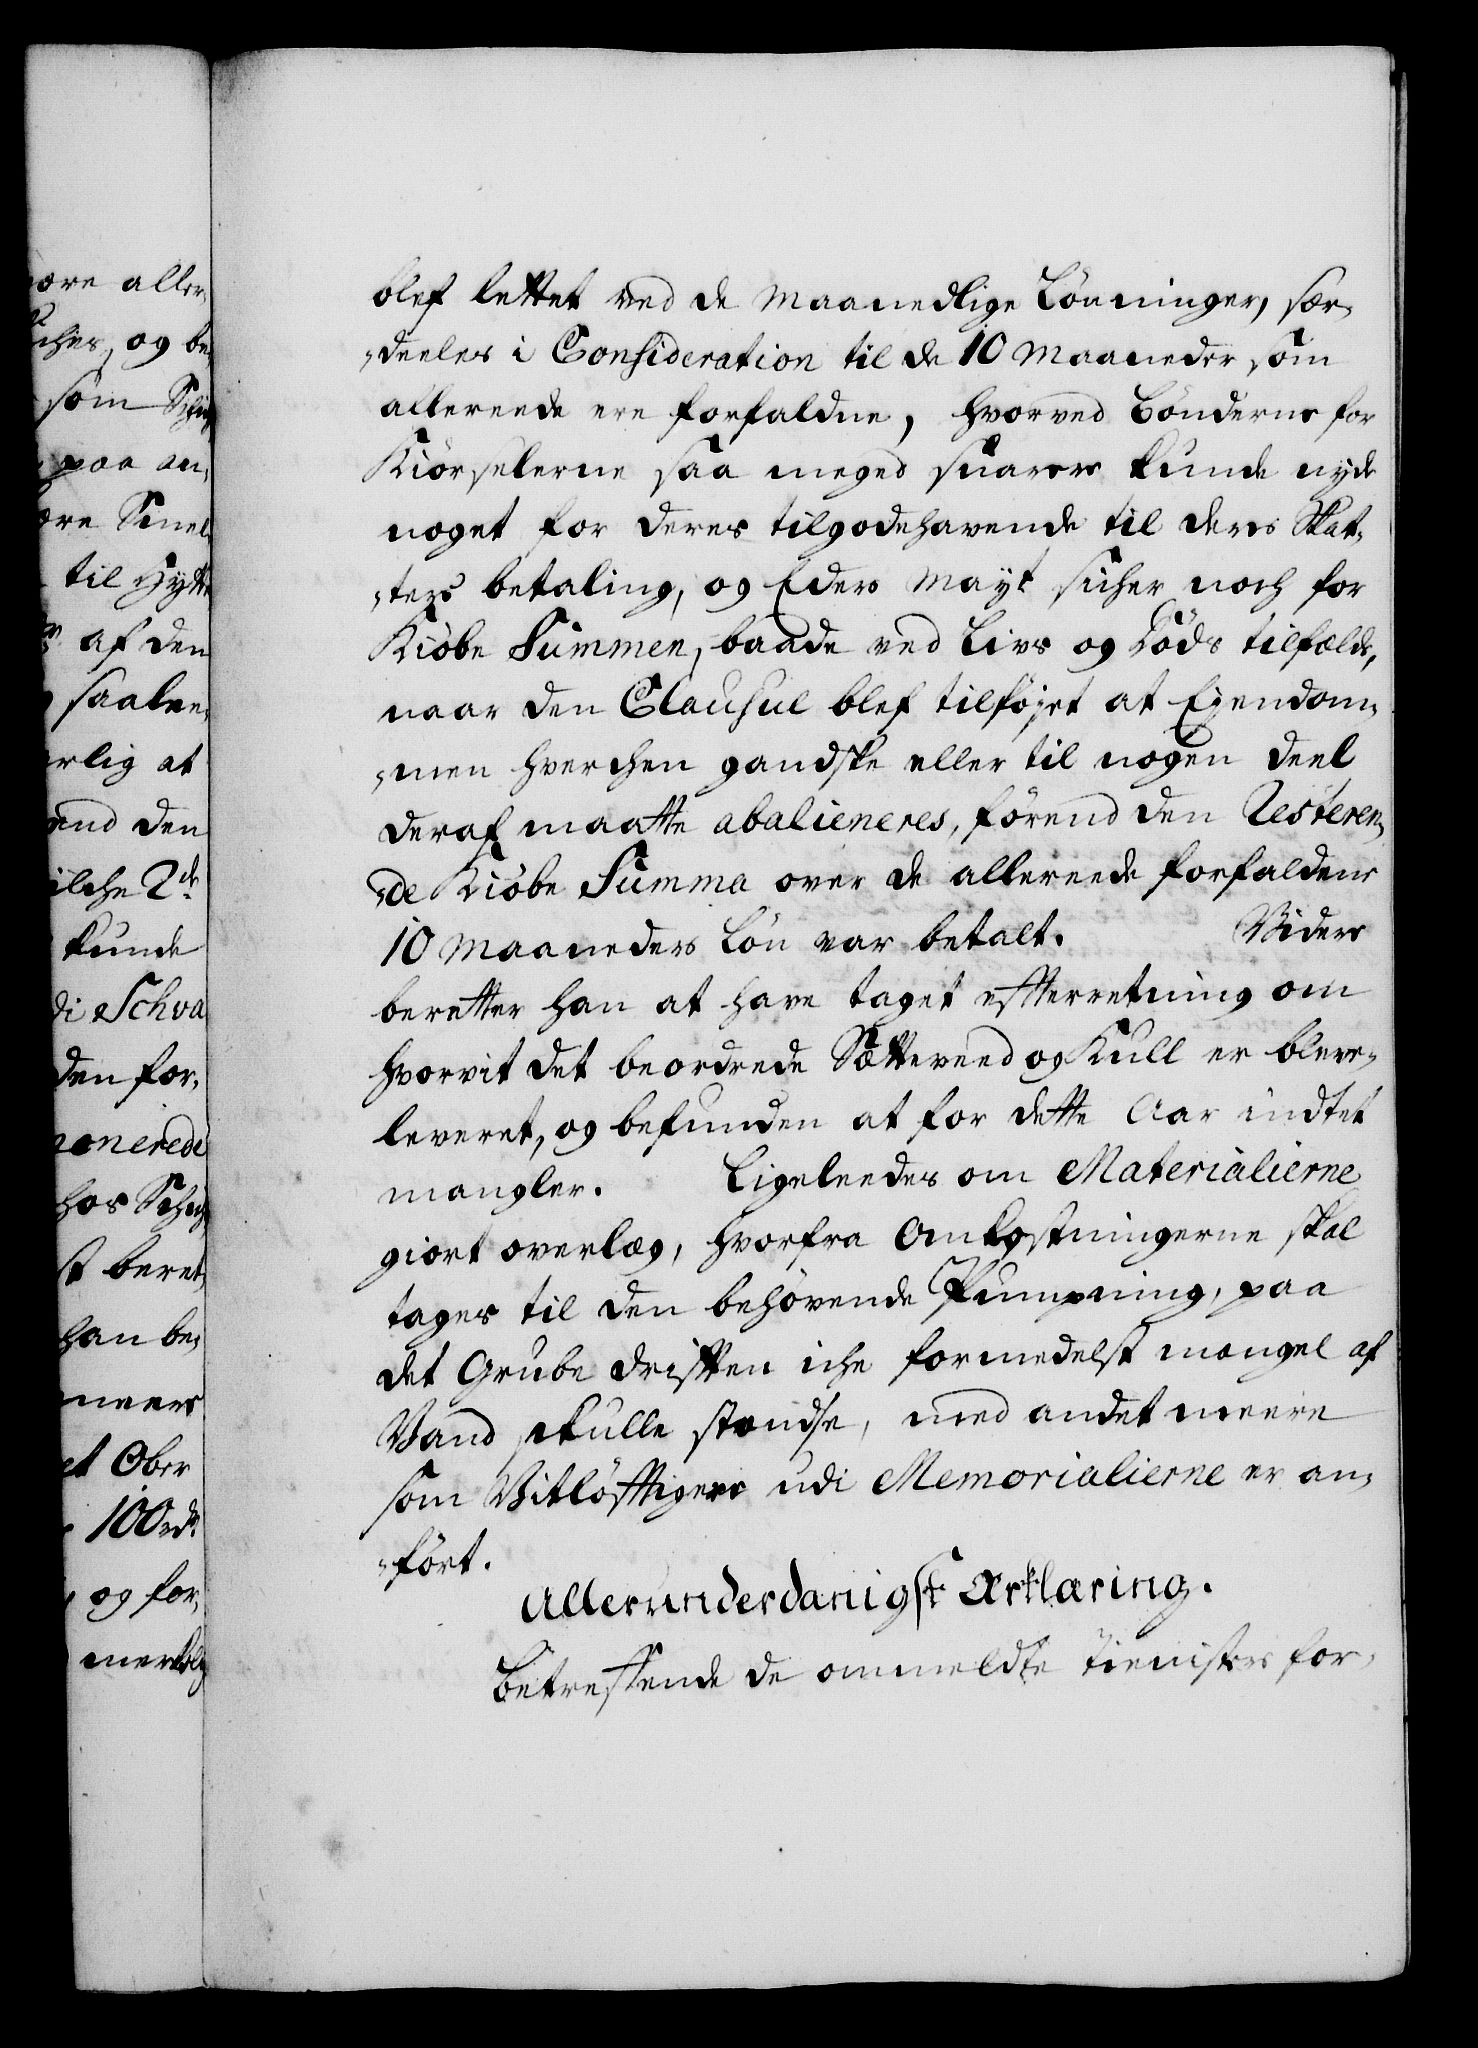 blef lettet ved de maanedlige Lönninger, sær-
deeles i Consideration til de 10 maaneder som
allereede ere forfaldne, hvorved Bönderne for
Kiörselerne saa meged snarere kunde nyde
noget for deres tilgodehavende til deres Skat-
ters betaling, og Eders Mayt sicher noch for
Kiöbe Summen, baade ved Livs og Döds tilfælde,
naar den Clausul blef tilföjet at Ejendom-
men hverchen gandske eller til nogen deel
deraf maatte abalieneres, förend den Resteren-
de Kiöbe Summa over de allereede forfaldene
10 maaneders Lön var betalt. Videre
beretter han at have taget efterretning om
hvorvit det beordrede Sætteveed og Kull er bleve-
leveret, og befunden at for dette Aar indtet
mangler. Ligeleedes om Materialierne
giort overlæg, hvorfra Omkostningerne skal
tages til den behövende Pumpning, paa
det Grube driften iche formedelst mangel af
Vand skulle standse, med andet meere
som Vitlöfftigere udi Memorialierne er an-
fört.
Allerunderdanigst Erklæring.
Betreffende de ommeldte Tienisters for-